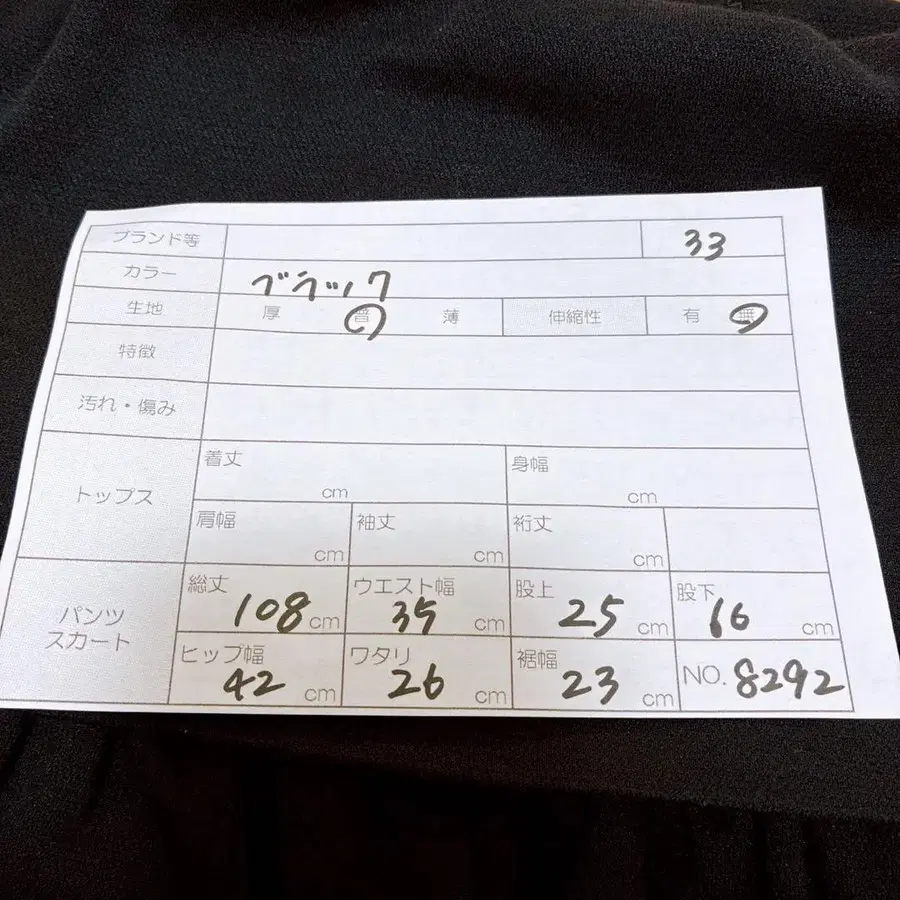 ブランド等 33
カラー ブラック
生地 厚 普 薄 伸縮性 有 無
特徴
汚れ・傷み
トップス 着丈 cm 身幅 cm
肩幅 cm 袖丈 cm 裄丈 cm
パンツ スカート 総丈 108 cm ウエスト幅 35 cm 股上 25 cm 股下 16 cm
ヒップ幅 42 cm ワタリ 26 cm 裾幅 23 cm NO. 8292